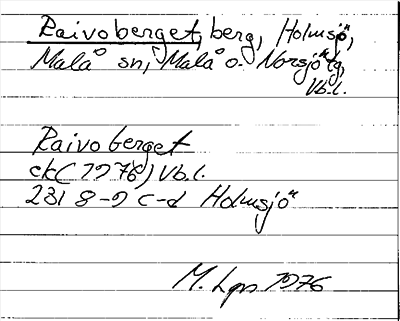 Raivoberget, berg, Holmsjö,
Malå sn, Malå o. Norsjö tg,
Vb.l.
Raivoberget
ek (1976) Vb.l.
231 8-9 c-d Holmsjö
M. Lgn 1976